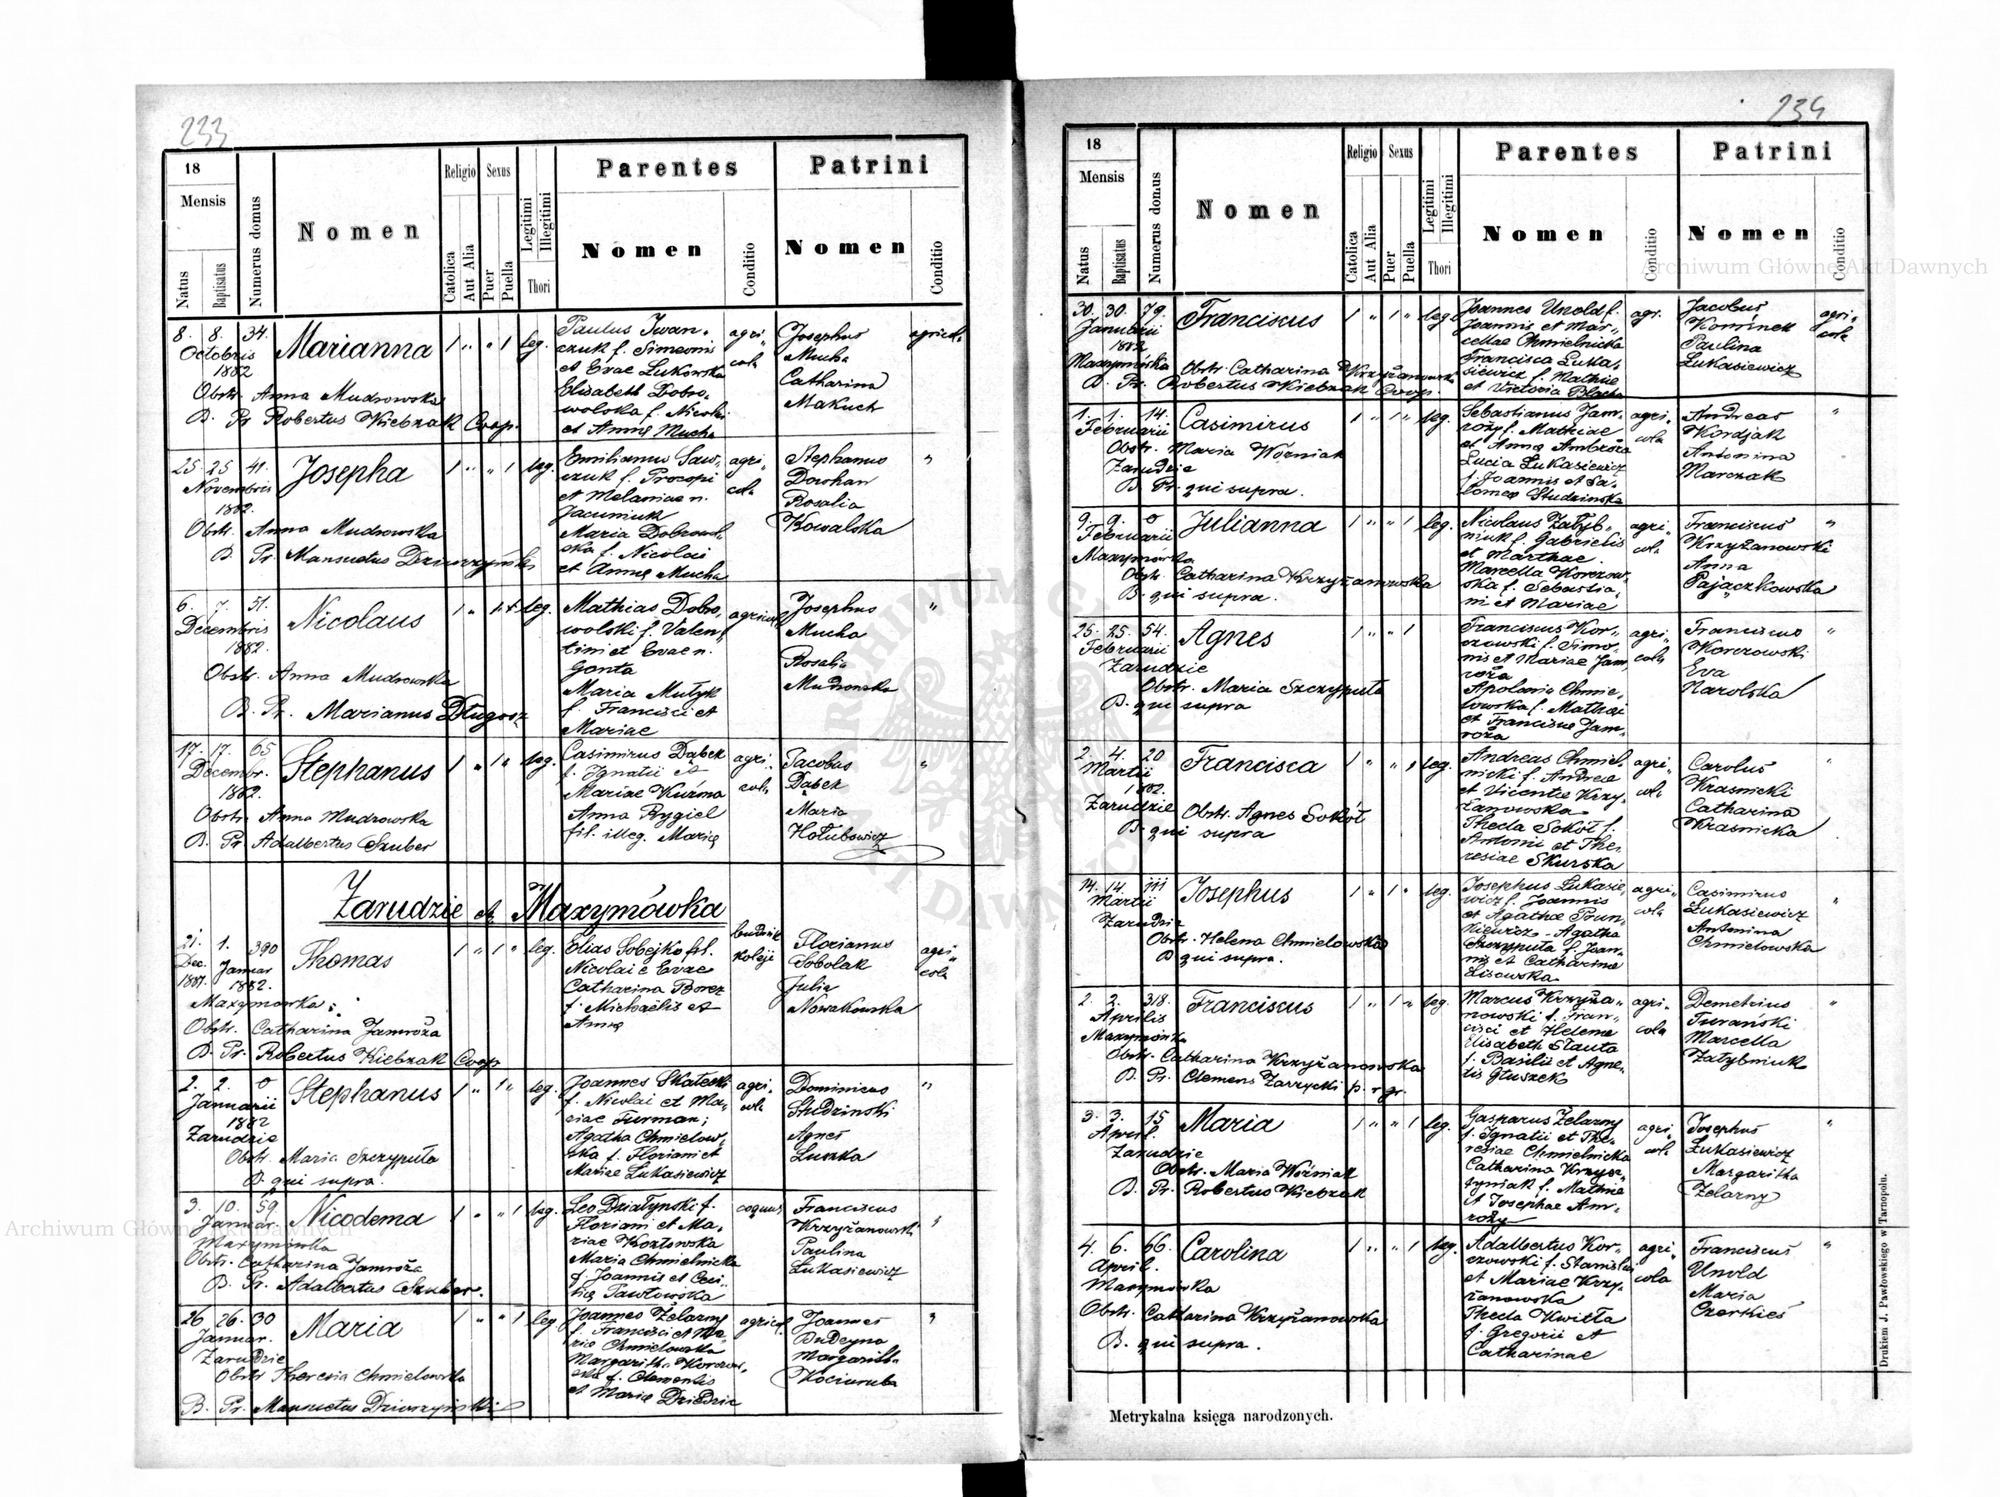 233
18
Mensis
Natus
Baptisatus
Numerus domus
Nomen
Religio
Catolica
Aut Alia
Sexus
Puer
Puella
Legitimi
Illegitimi
Thori
Parentes
Nomen
Conditio
Patrini
Nomen
Conditio
8. 8. 34.
Octobris
1882
Marianna
1 " " 1 leg.
Obstr. Anna Mudrowska
B. Pr Robertus Kiebzak Coop.
Paulus Iwan-
czuk f. Simeonis
et Evae Łukowska
Elisabeth Dobro-
wolska f. Nicolai
et Annę Mucha
agri-
cola
Josephus
Mucha
Catharina
Makuch
agricola
25 25 41.
Novembris
1882.
Josepha
1 " " 1 leg.
Obstr. Anna Mudrowska
B Pr. Mansuetus Dziurzyński
Emilianus Saw-
czuk f. Procopi
et Melaniae n.
Jacuniuk
Maria Dobrowol-
ska f. Nicolai
et Annę Mucha
agri-
cola
Stephanus
Dowhan
Rosalia
Kowalska
"
6. 7. 51.
Decembris
1882.
Nicolaus
leg.
Obstr. Anna Mudrowska
B. Pr. Marianus Długosz
Mathias Dobro-
wolski f. Valen-
tini et Evae n.
Gonta
Maria Mułyk
f. Francisci et
Mariae
agricola
Josephus
Mucha
Rosalia
Mudrowska
"
17. 17. 65
Decembr.
1882.
Stephanus
1 " 1 " leg.
Obstr. Anna Mudrowska
B. Pr. Adalbertus Szuber
Casimirus Dąbek
f. Ignatii et
Mariae Kuźma
Anna Rygiel
fil. illeg. Marię
agri-
cola
Jacobus
Dąbek
Maria
Hołubowicz
"
Zarudzie et Maxymówka
21. 1. 390
Dec. Januar
1881. 1882.
Thomas
1 " 1 " leg.
Maxymówka
Obstr. Catharina Jamroża
B. Pr. Robertus Kiebzak Coop
Elias Sobejko fil.
Nicolai e Evae
Catharina Borcz
f. Michaelis et
Annę
budnik
koleji
Florianus
Sobolak
Julia
Nowakowska
agri-
cola
2. 2. 0
Januarii
1882
Stephanus
1 " 1 " leg.
Zarudzie
Obstr. Maria Szczyputa
B. qui supra.
Joannes Skałecki
f. Nicolai et Ma-
riae Furman;
Agatha Chmielow-
ska f. Floriani et
Mariae Łukasiewicz
agri-
cola
Dominicus
Studzinski
Agnes
Luszka
"
3. 10. 59.
Januar.
Nicodema
1 " " 1 leg.
Maxymówka
Obstr. Catharina Jamroża
B. Pr. Adalbertus Szuber.
Leo Działynski f.
Floriani et Ma-
riae Kozłowska
Maria Chmielnicka
f. Joannis et Ceci-
lię Pawłowska
coquus
Franciscus
Krzyżanowski
Paulina
Łukasiewicz
"
26 26. 30
Januar.
Maria
1 " " 1 leg
Zarudzie
Obstr Theresia Chmielowska
B. Pr. Mansuetus Dziurzyński
Joannes Żelazny
f. Francisci et Ma-
rię Chmielowska
Margaritha Korczow-
ska f. Clementis
et Marię Dziedzic
agricol.
Joannes
Budeyna
Margaritha
Kociuruba
"
234
18
Mensis
Natus
Baptisatus
Numerus domus
Nomen
Religio
Catolica
Aut Alia
Sexus
Puer
Puella
Legitimi
Illegitimi
Thori
Parentes
Nomen
Conditio
Patrini
Nomen
Conditio
30. 30. 79.
Januarii
1882
Franciscus
1 " 1 " leg.
Maxymówka Obstr. Catharina Krzyżanowska
B. Pr. Robertus Kiebzak Coop.
Joannes Unold f.
Joannis et Mar-
cellae Chmielnicka
Francisca Łuka-
siewicz f. Mathię
et Victoria Blacha
agr.
Jacobus
Paulina
Łukasiewicz
agri-
cola
1. 1. 14.
Februarii
Casimirus
1 " 1 " leg.
Obstr. Maria Woźniak
Zarudzie
B. Pr. qui supra.
Sebastianus Jam-
roży f. Mathiae
et Anna Ambroża
Lucia Łukasiewicz
f. Joannis et Sa-
lomea Studzinska
agri-
cola
Andreas
Kordjak
Antonina
Marczak
"
9. 9. 0
Februarii
Julianna
1 " " 1 leg.
Maxymówka
Obstr. Catharina Krzyżanowska
B. qui supra.
Nicolaus Załyb-
niuk f. Gabrielis
et Marthae
Marcella Korczow-
ska f. Sebastia-
ni et Mariae
agri-
cola
Franciscus
Krzyżanowski
Anna
Pajączkowska
"
25. 25. 54.
Februarii
Agnes
1 " " 1
Zarudzie
Obstr. Maria Szczyputa
B. qui supra
Franciscus Kor-
czowski f. Simo-
nis et Mariae Jam-
roża
Apolonia Chmie-
lowska f. Mathaei
et Franciscae Jam-
roża
agri-
cola
Franciscus
Korczowski
Eva
Narolska
"
2. 4. 20
Martii
1882.
Francisca
1 " " 1 leg.
Zarudzie Obstr. Agnes Sokół
B. qui supra
Andreas Chmiel-
nicki f. Andreae
et Vicentie Krzy-
żanowska
Thecla Sokół f.
Antonii et The-
resiae Skurska
agri-
cola
Carolus
Krasnicki
Catharina
Krasnicka
"
14. 14. 111
Martii
Josephus
1 " 1 " leg.
Zarudzie
Obstr. Helena Chmielowska
B qui supra.
Josephus Łukasie-
wicz f. Joannis
et Agathae Prun-
kiewicz - Agatha
Szczyputa f. Joan-
nis et Catharinae
Lisowska
agri-
cola
Casimirus
Łukasiewicz
Antonina
Chmielowska
"
2. 2. 318.
Aprilis
Franciscus
1 " 1 " leg.
Maxymówka
Obstr. Catharina Krzyżanowska
B. Pr. Clemens Zarzycki p. r gr.
Marcus Krzyża-
nowski f. Fran-
cisci et Helenae
Elisabeth Stauta
f. Basilii et Agne-
tis Głuszek
agri-
cola
Demetrius
Turański
Marcella
Załybniuk
"
3. 3. 15
April.
Maria
1 " " 1 leg.
Zarudzie
Obstr. Maria Woźniak
B. Pr. Robertus Kiebzak
Gasparus Żelazny
f. Ignatii et The-
resiae Chmielnicka
Catharina Krzysz-
tyniak f. Mathię
et Josephae Am-
roży
agri-
cola
Josephus
Łukasiewicz
Margaritha
Żelazny
"
4. 6. 66.
April.
Carolina
1 " " 1 leg.
Maxymówka
Obstr. Catharina Krzyżanowska
B. qui supra.
Adalbertus Kor-
czowski f. Stanislai
et Mariae Krzy-
żanowska
Thecla Kwitła
f. Gregorii et
Catharinae
agri-
cola
Franciscus
Unold
Maria
Czerkies
"
Metrykalna księga narodzonych.
Drukiem J. Pawłowskiego w Tarnopolu.
Archiwum Główne Akt Dawnych
Archiwum Główne Akt Dawnych